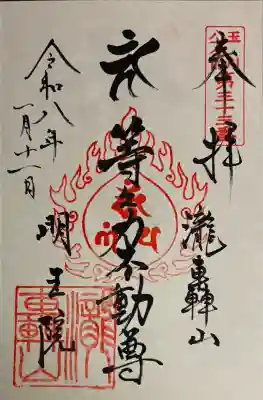 奉拝
瀧轟山
等々力不動尊
明王院
令和八年
一月十一日